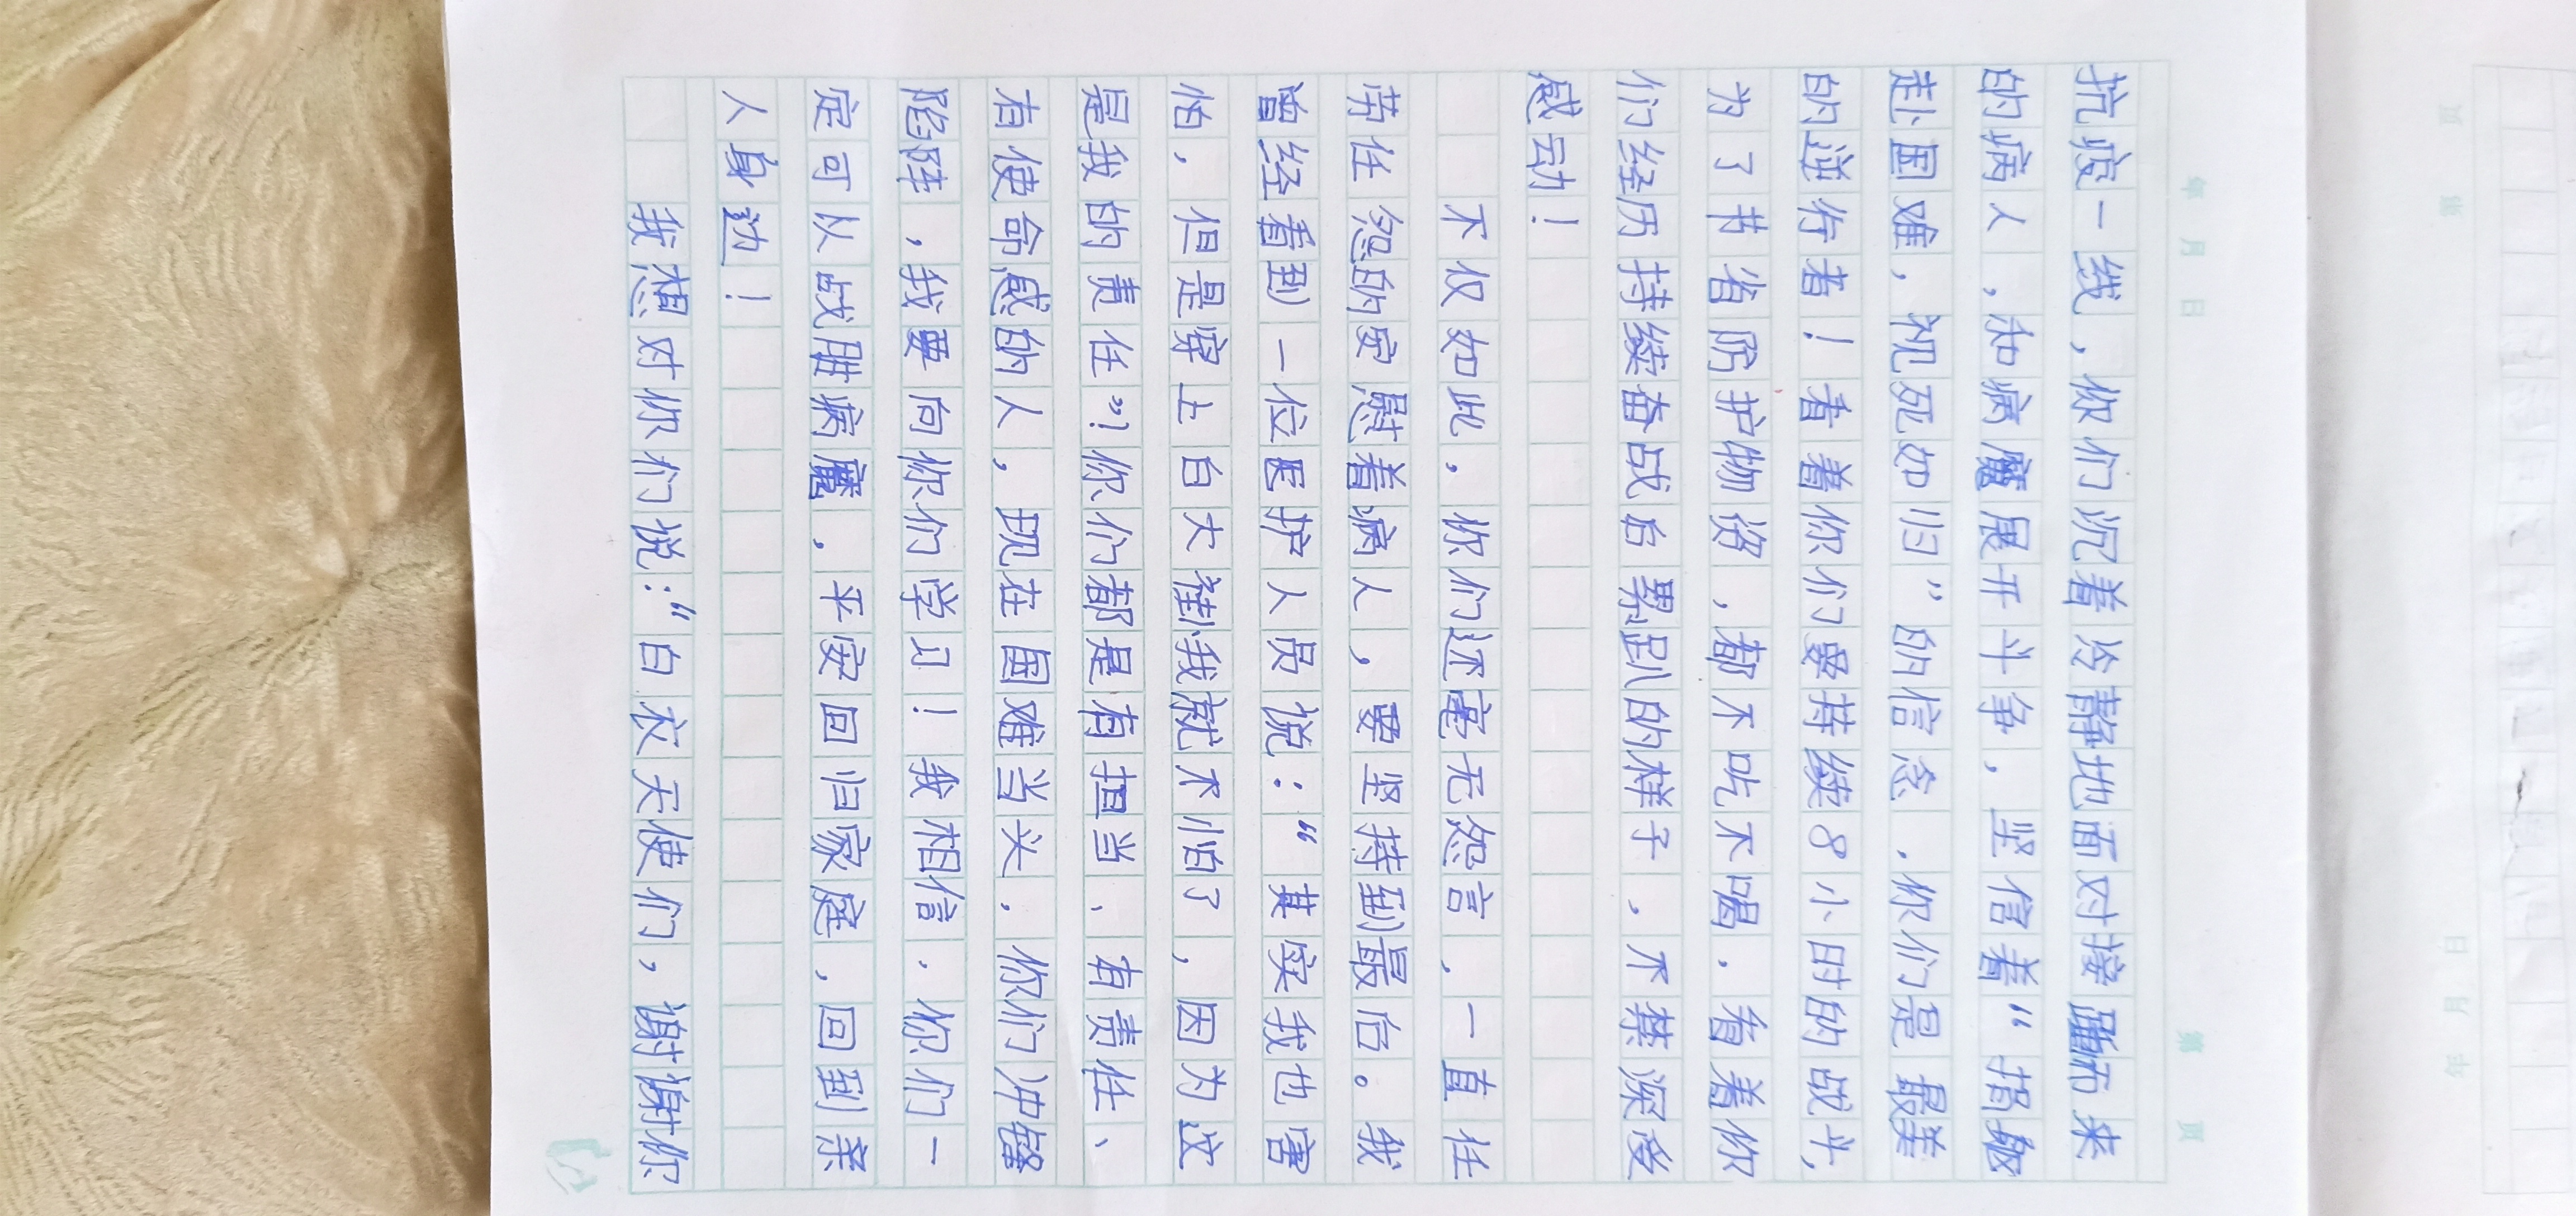 年 月 日 第 页
抗疫一线，你们沉着冷静地面对接踵而来
的病人，和病魔展开斗争，坚信着“捐躯
赴国难，视死如归”的信念．你们是最美
的逆行者！看着你们要持续8小时的战斗，
为了节省防护物资，都不吃不喝．看着你
们经历持续奋战后累趴的样子．不禁深受
感动！
不仅如此．你们还毫无怨言，一直任
劳任怨的安慰着病人，要坚持到最后。我
曾经看到一位医护人员说：“其实我也害
怕，但是穿上白大褂我就不怕了，因为这
是我的责任”！你们都是有担当、有责任、
有使命感的人，现在国难当头．你们冲锋
陷阵，我要向你们学习！我相信．你们一
定可以战胜病魔．平安回归家庭，回到亲
人身边！
我想对你们说：“白衣天使们，谢谢你